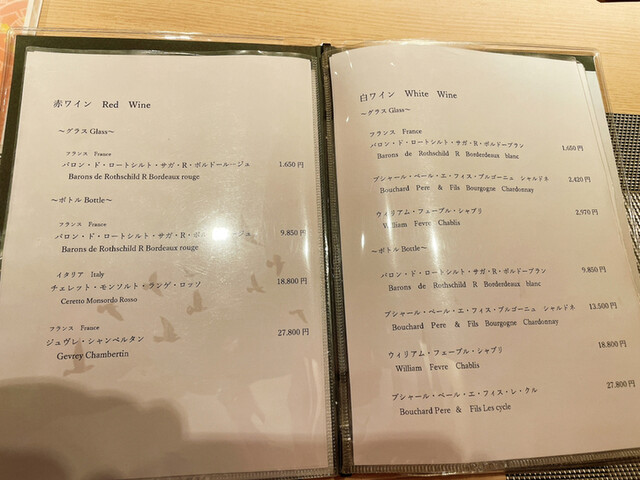 赤ワイン Red Wine
～グラス Glass～
フランス France
バロン・ド・ロートシルト・サガ・R・ボルドールージュ 1.650円
Barons de Rothschild R Bordeaux rouge
～ボトル Bottle～
フランス France
バロン・ド・ロートシルト・サガ・R・ボルドールージュ 9.850円
Barons de Rothschild R Bordeaux rouge
イタリア Italy
チェレット・モンソルト・ランゲ・ロッソ 18.800円
Ceretto Monsordo Rosso
フランス France
ジュヴレ・シャンベルタン 27.800円
Gevrey Chambertin
白ワイン White Wine
～グラス Glass～
フランス France
バロン・ド・ロートシルト・サガ・R・ボルドーブラン 1.650円
Barons de Rothschild R Borderdeaux blanc
ブシャール・ペール・エ・フィス・ブルゴーニュ シャルドネ 2.420円
Bouchard Pere & Fils Bourgogne Chardonnay
ウィリアム・フェーブル・シャブリ 2,970円
William Fevre Chablis
～ボトル Bottle～
バロン・ド・ロートシルト・サガ・R・ボルドーブラン 9.850円
Barons de Rothschild R Borderdeaux blanc
ブシャール・ペール・エ・フィス・ブルゴーニュ シャルドネ 13.500円
Bouchard Pere & Fils Bourgogne Chardonnay
ウィリアム・フェーブル・シャブリ 18.800円
William Fevre Chablis
ブシャール・ペール・エ・フィス・レ・クル 27.800円
Bouchard Pere & Fils Les cycle